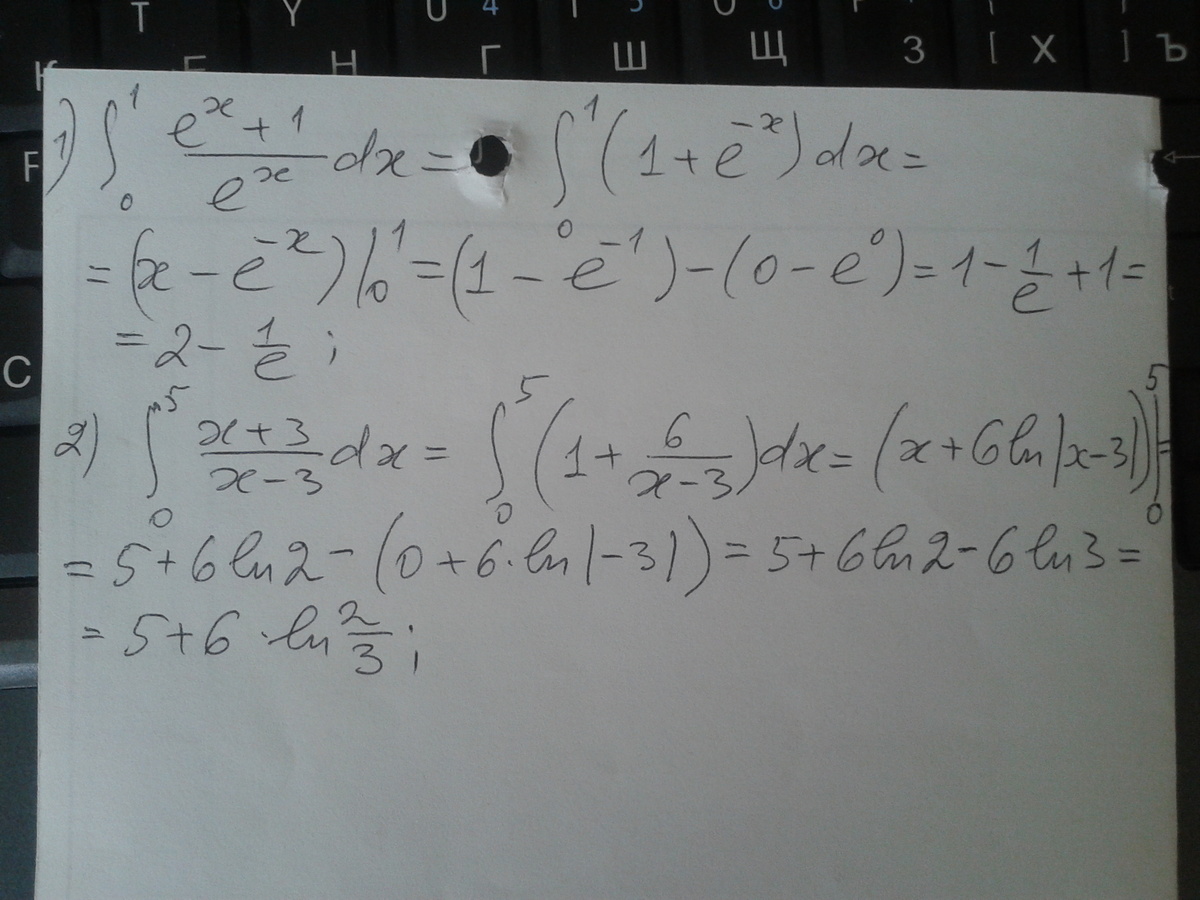 T Y U 4 I 5 O 6 P [ ]
Н Г Ш Щ З Х Ъ
F
С
1) ∫₀¹ (eˣ + 1)/eˣ dx = ∫₀¹ (1 + e⁻ˣ) dx =
= (x − e⁻ˣ)|₀¹ = (1 − e⁻¹) − (0 − e⁰) = 1 − 1/e + 1 =
= 2 − 1/e ;
2) ∫₀⁵ (x + 3)/(x − 3) dx = ∫₀⁵ (1 + 6/(x − 3)) dx = (x + 6 ln|x − 3|)|₀⁵ =
= 5 + 6 ln 2 − (0 + 6 · ln|−3|) = 5 + 6 ln 2 − 6 ln 3 =
= 5 + 6 · ln 2/3 ;